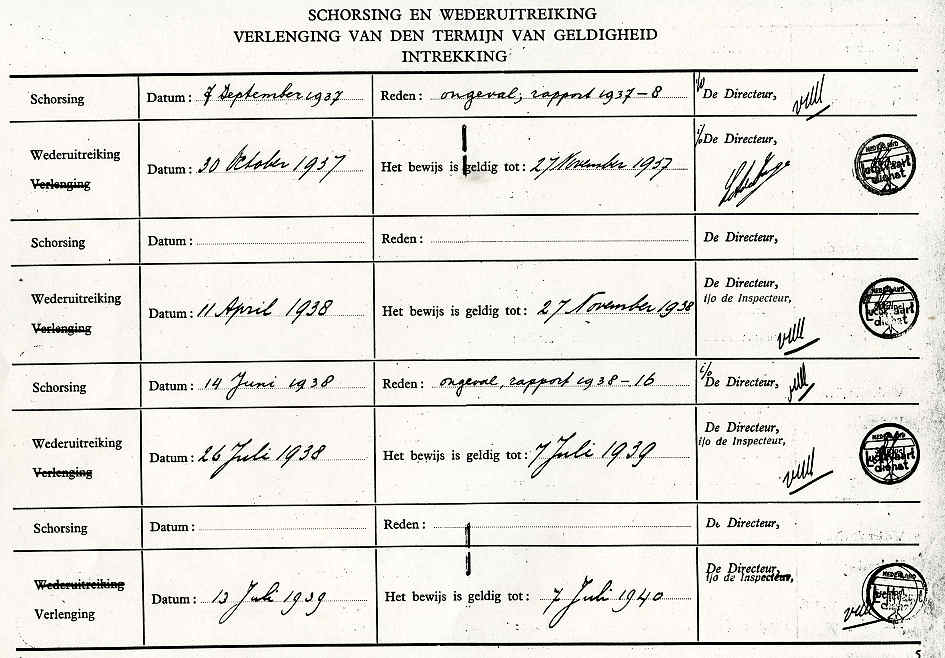 SCHORSING EN WEDERUITREIKING
VERLENGING VAN DEN TERMIJN VAN GELDIGHEID
INTREKKING
Schorsing Datum: 7 September 1937 Reden: ongeval; rapport 1937-8 i/o De Directeur,
Wederuitreiking
Verlenging Datum: 30 October 1937 Het bewijs is geldig tot: 27 November 1937 i/o De Directeur,
NEDERLAND
luchtvaart
dienst
Schorsing Datum: Reden: De Directeur,
Wederuitreiking
Verlenging Datum: 11 April 1938 Het bewijs is geldig tot: 27 November 1938 De Directeur,
i/o de Inspecteur,
NEDERLAND
luchtvaart
dienst
Schorsing Datum: 14 Juni 1938 Reden: ongeval, rapport 1938-16 i/o De Directeur,
Wederuitreiking
Verlenging Datum: 26 Juli 1938 Het bewijs is geldig tot: 7 Juli 1939 De Directeur,
i/o de Inspecteur,
NEDERLAND
luchtvaart
dienst
Schorsing Datum: Reden: De Directeur,
Wederuitreiking
Verlenging Datum: 13 Juli 1939 Het bewijs is geldig tot: 7 Juli 1940 De Directeur,
i/o de Inspecteur,
NEDERLAND
5